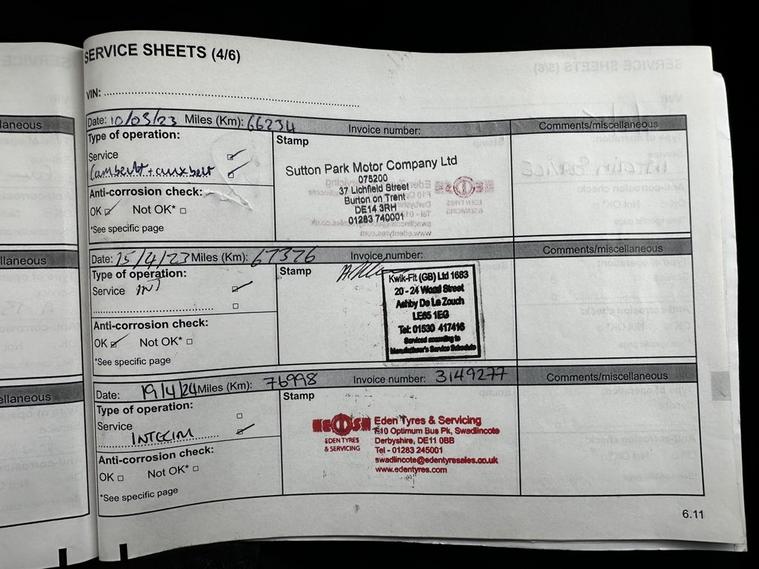 SERVICE SHEETS (4/6)
VIN:
Date: 10/03/23 Miles (Km): 66234 Invoice number: Comments/miscellaneous
Type of operation:
Service
Cambelt + aux belt
Anti-corrosion check:
OK Not OK*
*See specific page
Stamp
Sutton Park Motor Company Ltd
075200
37 Lichfield Street
Burton on Trent
DE14 3RH
01283 740001
Date: 25/4/23 Miles (Km): 67326 Invoice number: Comments/miscellaneous
Type of operation:
Service INT
Anti-corrosion check:
OK Not OK*
*See specific page
Stamp
Kwik-Fit (GB) Ltd 1683
20 - 24 Wood Street
Ashby De La Zouch
LE65 1EG
Tel: 01530 417416
Serviced according to
Manufacturer's Service Schedule
Date: 19/4/24 Miles (Km): 76998 Invoice number: 3149277 Comments/miscellaneous
Type of operation:
Service
INTERIM
Anti-corrosion check:
OK Not OK*
*See specific page
Stamp
EDEN TYRES
& SERVICING
Eden Tyres & Servicing
F10 Optimum Bus Pk, Swadlincote
Derbyshire, DE11 0BB
Tel - 01283 245001
swadlincote@edentyresales.co.uk
www.edentyres.com
6.11